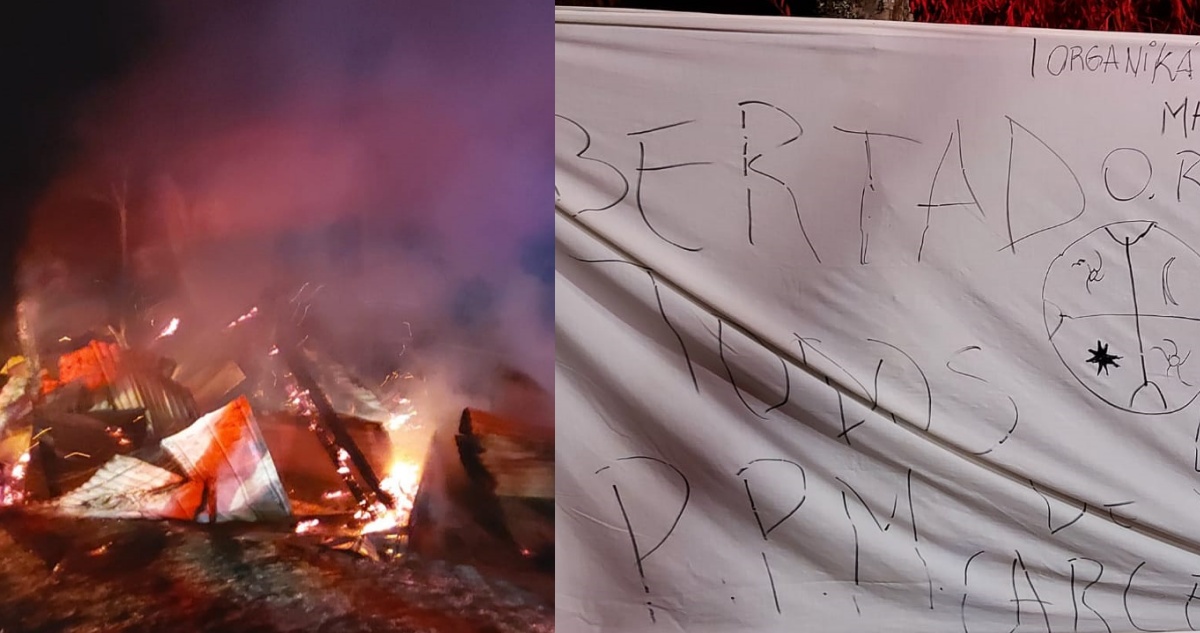 ORGANIKA
MA
BERTAD O.R
TODOS
P.P.M. DE
CARCE